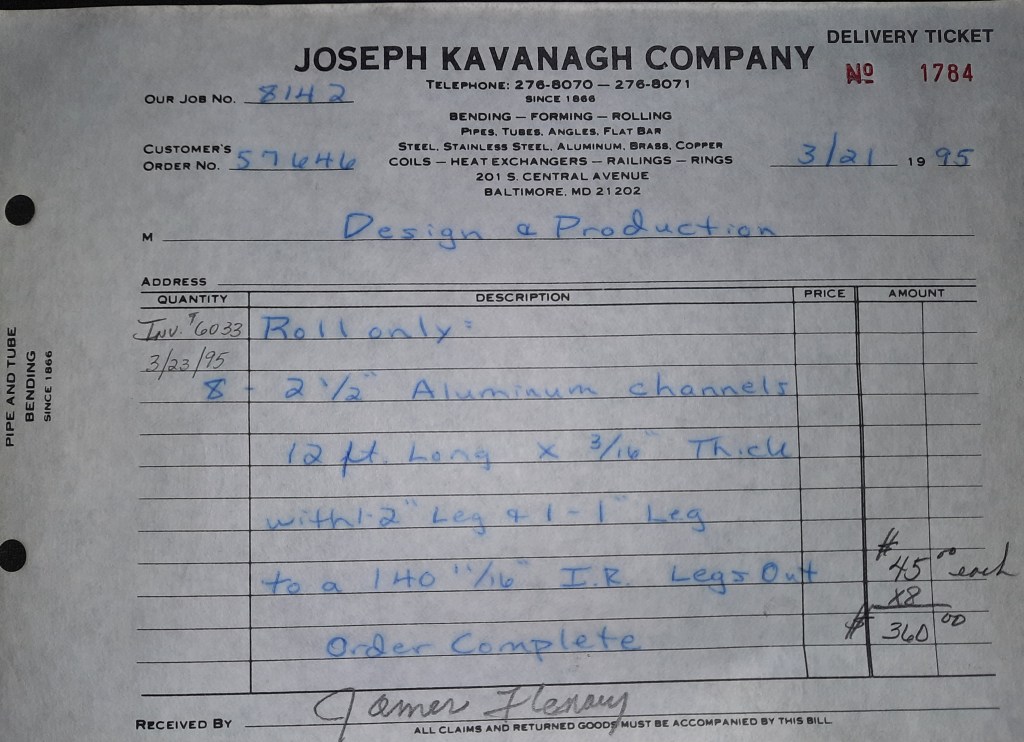 DELIVERY TICKET
JOSEPH KAVANAGH COMPANY
Nº 1784
TELEPHONE: 276-8070 — 276-8071
OUR JOB NO. 8142
SINCE 1866
BENDING — FORMING — ROLLING
PIPES, TUBES, ANGLES, FLAT BAR
STEEL, STAINLESS STEEL, ALUMINUM, BRASS, COPPER
CUSTOMER'S
ORDER NO. 57646
COILS — HEAT EXCHANGERS — RAILINGS — RINGS
3/21 19 95
201 S. CENTRAL AVENUE
BALTIMORE, MD 21202
M Design & Production
ADDRESS
QUANTITY DESCRIPTION PRICE AMOUNT
Inv. # 6033 Roll only:
3/23/95
8 - 2 1/2" Aluminum channels
12 ft. Long x 3/16" Thick
with 1-2" Leg & 1-1" Leg
to a 140 11/16" I.R. Legs Out $45 00 each
X8
Order Complete $360 00
RECEIVED BY James
ALL CLAIMS AND RETURNED GOODS MUST BE ACCOMPANIED BY THIS BILL
PIPE AND TUBE
BENDING
SINCE 1866